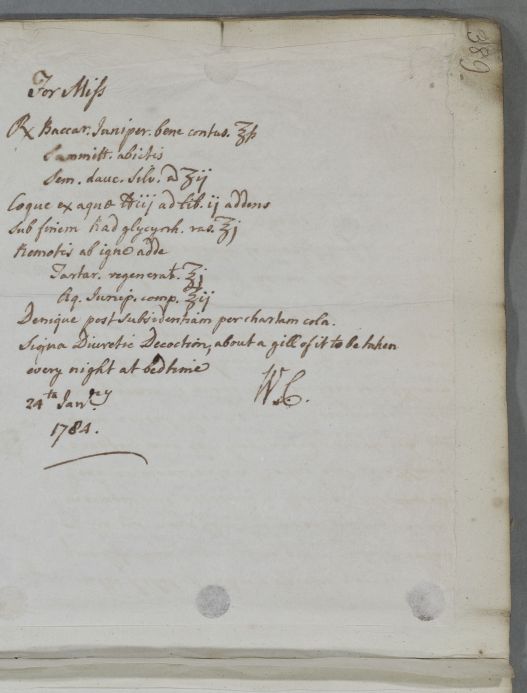 389
For Miſs
℞ Baccar. Juniper. bene contus. ʒſs
Summitt. abietis
Sem. dauc. silv. a ʒij
Coque ex aquæ ℔iij ad lib. ij addens
sub finem Rad glycyrrh. ras. ʒj
Remotis ab igne adde
Tartar. regenerat. ʒj
Aq. Junip. comp. ʒij
Denique post subsidentiam per chartam cola.
Signa Diuretic Decoction, about a gill of it to be taken
every night at bedtime
W. C.
24th Janry
1784.